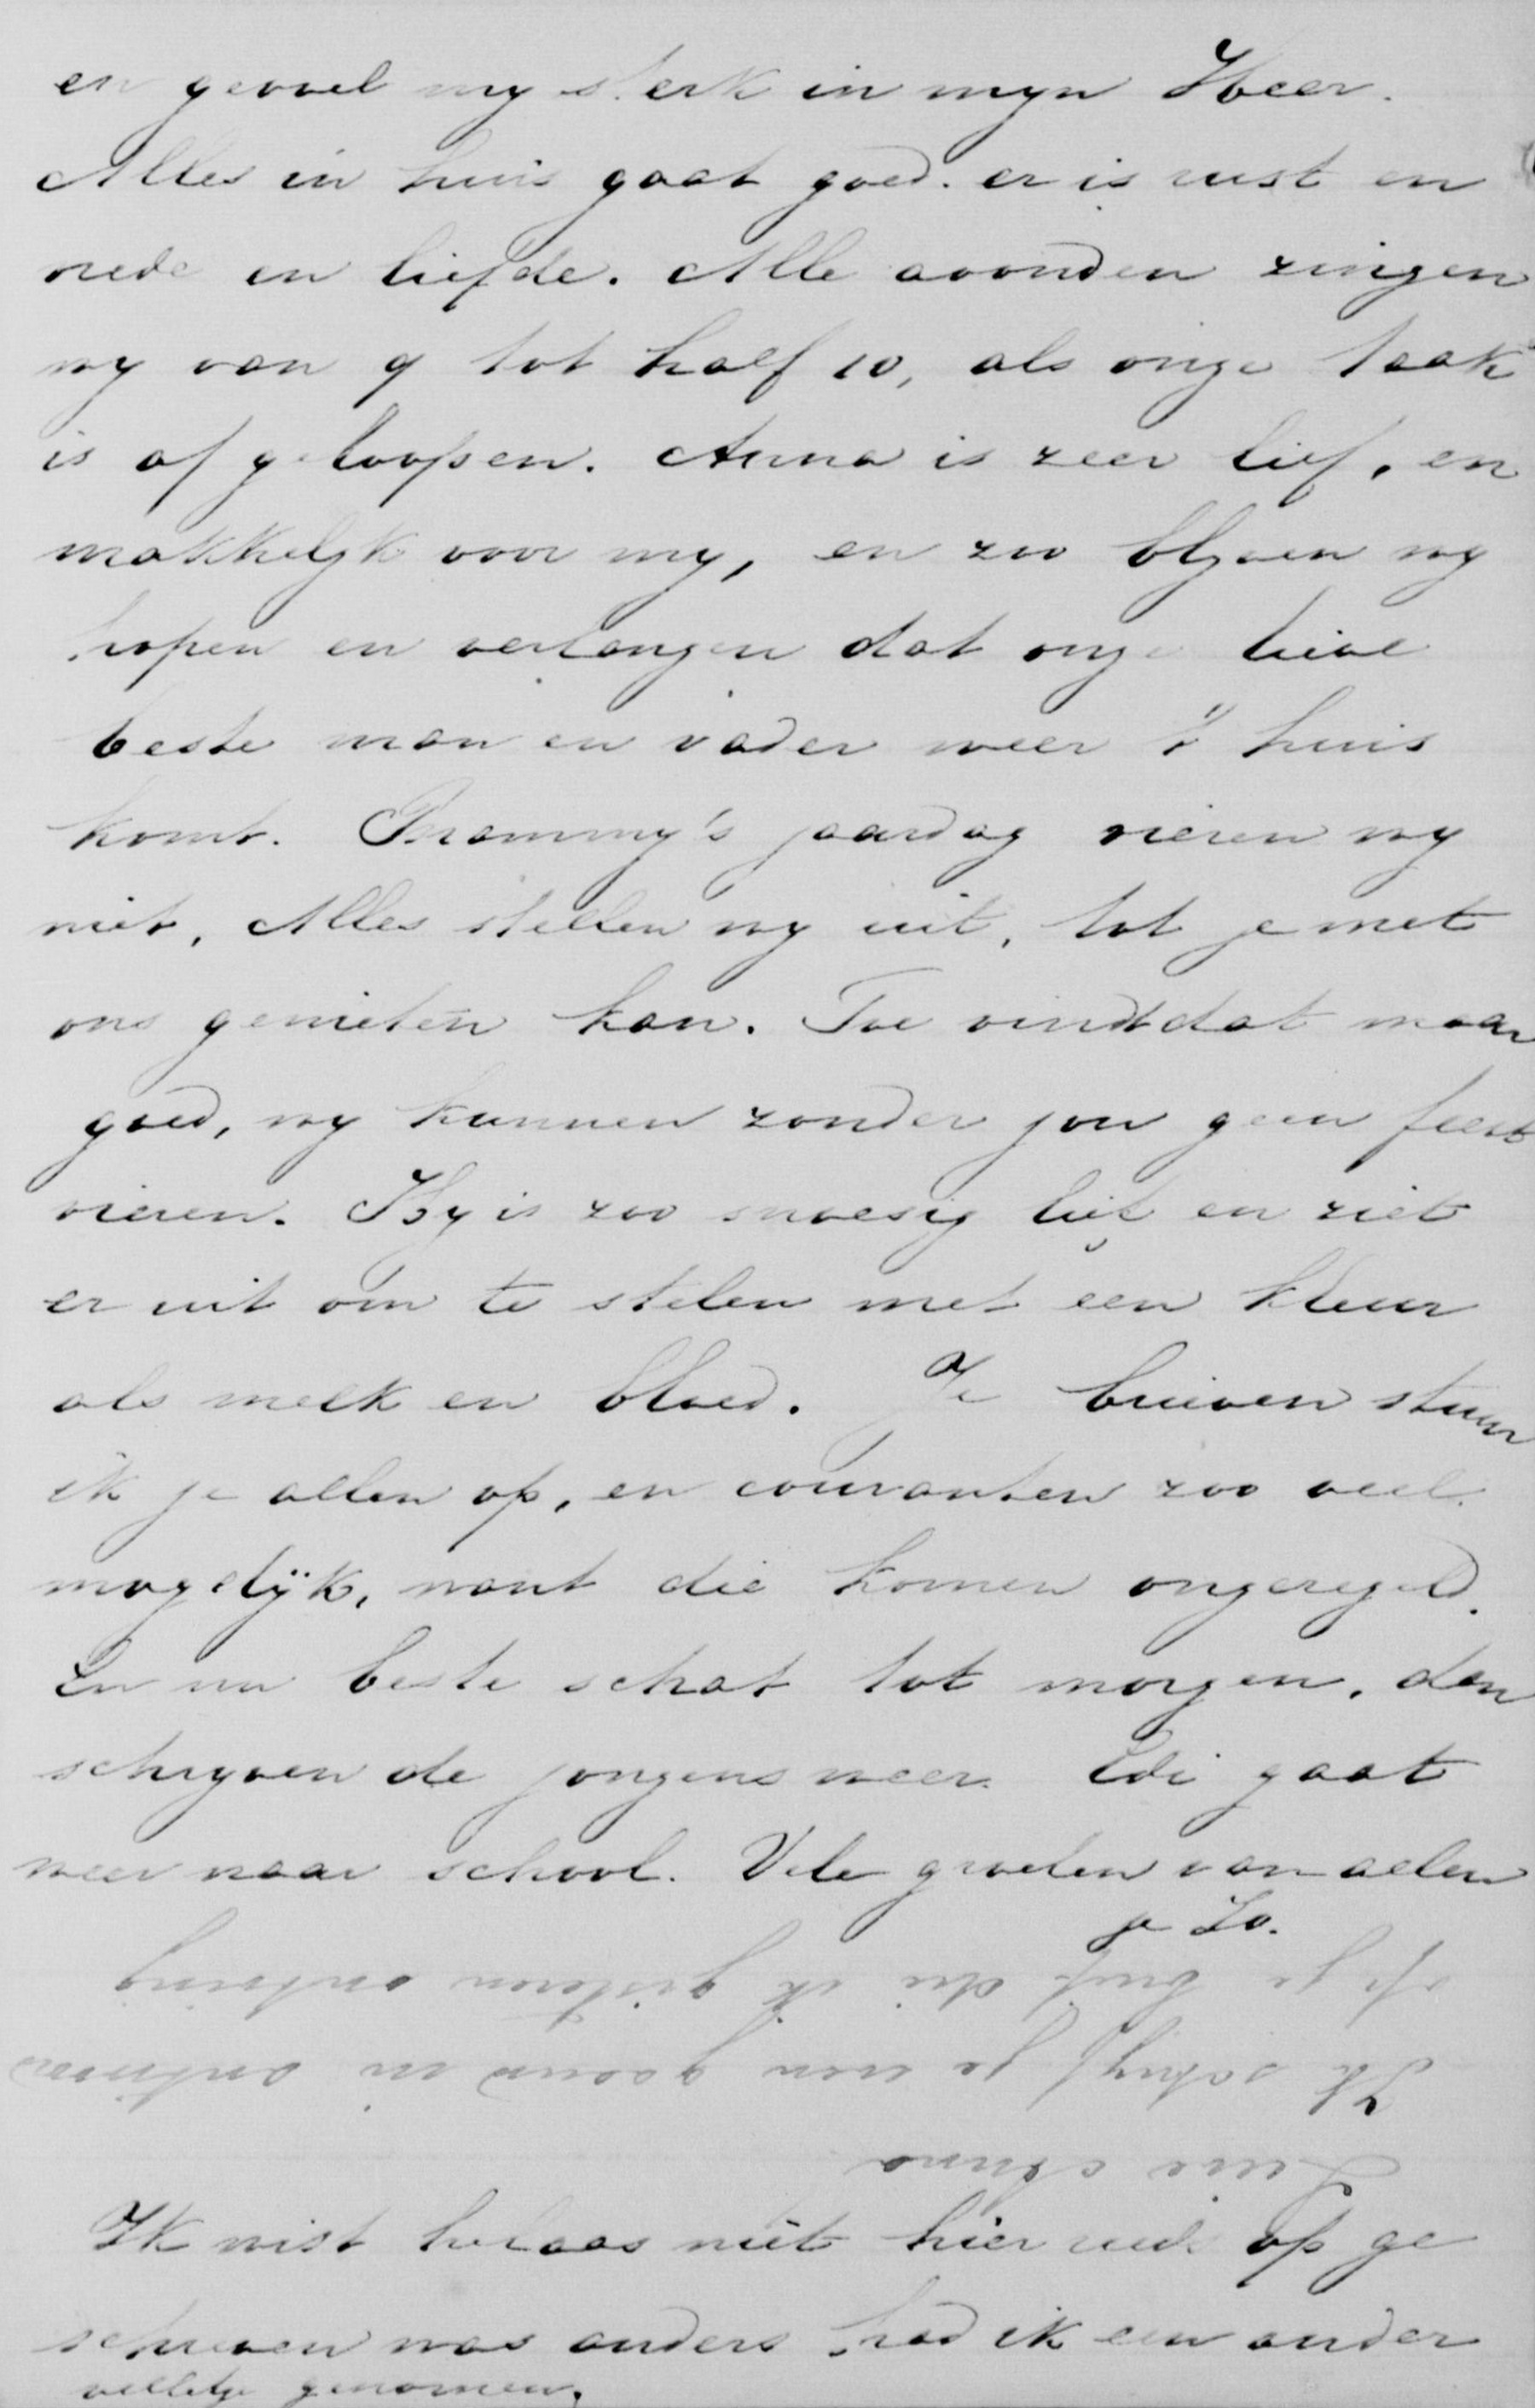 en gevoel my sterk in myn Heer.
Alles in huis gaat goed. er is rust en
vrede en liefde. Alle avonden zingen
wy van 9 tot half 10, als onze taak
is af geloopen. Anna is zeer lief, en
makkelyk voor my, en zoo blyven wy
hopen en verlangen dat onze lieve
beste man en vader weer t' huis
komt. Brammy's jaardag vieren wy
niet, Alles stellen wy uit, tot je met
ons genieten kan. Toe vindt dat maar
goed, wy kunnen zonder jou geen feest
vieren. Hy is zoo snoesig lief en ziet
er uit om te stelen met een kleur
als melk en bloed. Je brieven stuur
ik je allen op, en couranten zoo veel
mogelijk, want die komen ongeregeld.
En nu beste schat tot morgen, dan
schryven de jongens weer. Edi gaat
weer naar school. Vele groeten van allen
je Jo.
Lieve Anna
Ik schryf je een woord in antwoord
op je brief die ik gisteren ontving
Ik wist helaas niet hier reeds op ge
schreven was anders had ik een ander
velletje genomen.